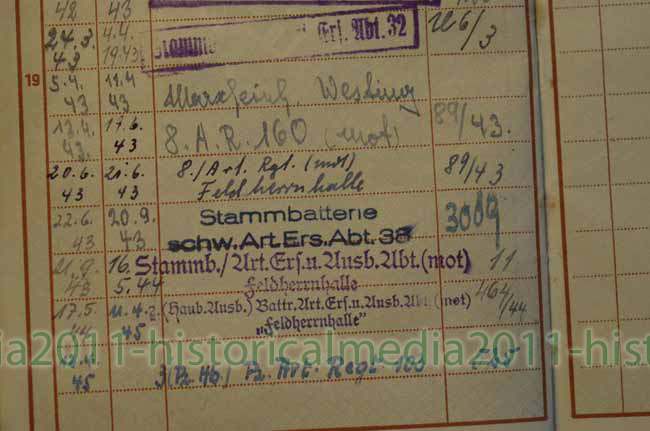 42 43
24.3. 4.4.
43 19.43 Stamm Ers. Abt. 32 126/3
19 5.4. 11.4
43 43
13.4. 17.6. 8. A.R. 160 (mot) 89/43.
43. 43
20.6. 21.6. 8./Art. Rgt. (mot) 89/43
43 43 Feldherrnhalle
22.6. 20.9. Stammbatterie 3009
43 43 schw.Art.Ers.Abt.38
21.9. 16. Stammb./Art.Ers.u.Ausb.Abt.(mot) 11
43 5.44 Feldherrnhalle
17.5. (Haub.Ausb.) Battr.Art.Ers.u.Ausb.Abt.(mot) 464/44
44 45 „Feldherrnhalle"
media2011-historicalmedia2011-hist
45 3(Pz. Hb.) Pz. Art. Regt.